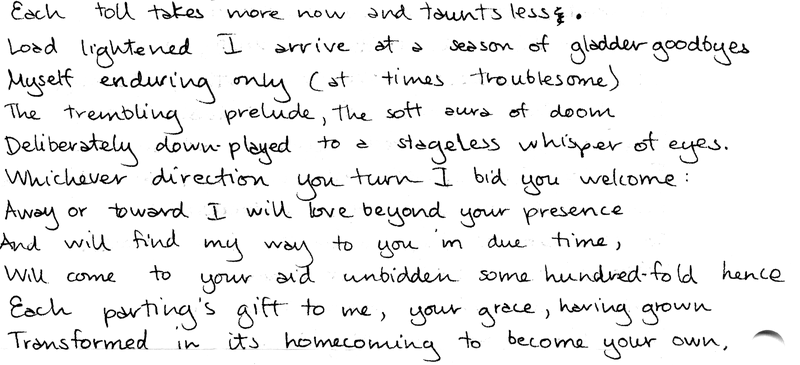 Each toll takes more now and taunts less.
Load lightened I arrive at a season of gladder goodbyes
Myself enduring only (at times troublesome)
The trembling prelude, the soft aura of doom
Deliberately down-played to a stageless whisper of eyes.
Whichever direction you turn I bid you welcome:
Away or toward I will love beyond your presence
And will find my way to you in due time,
Will come to your aid unbidden some hundred-fold hence
Each parting's gift to me, your grace, having grown
Transformed in its homecoming to become your own.